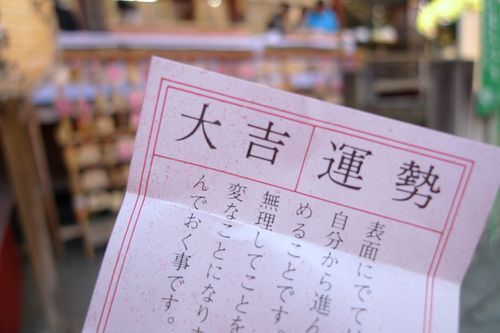 大吉
運勢
表面にでてい
自分から進ん
めることです
無理してことを
変なことになりま
んでおく事です。